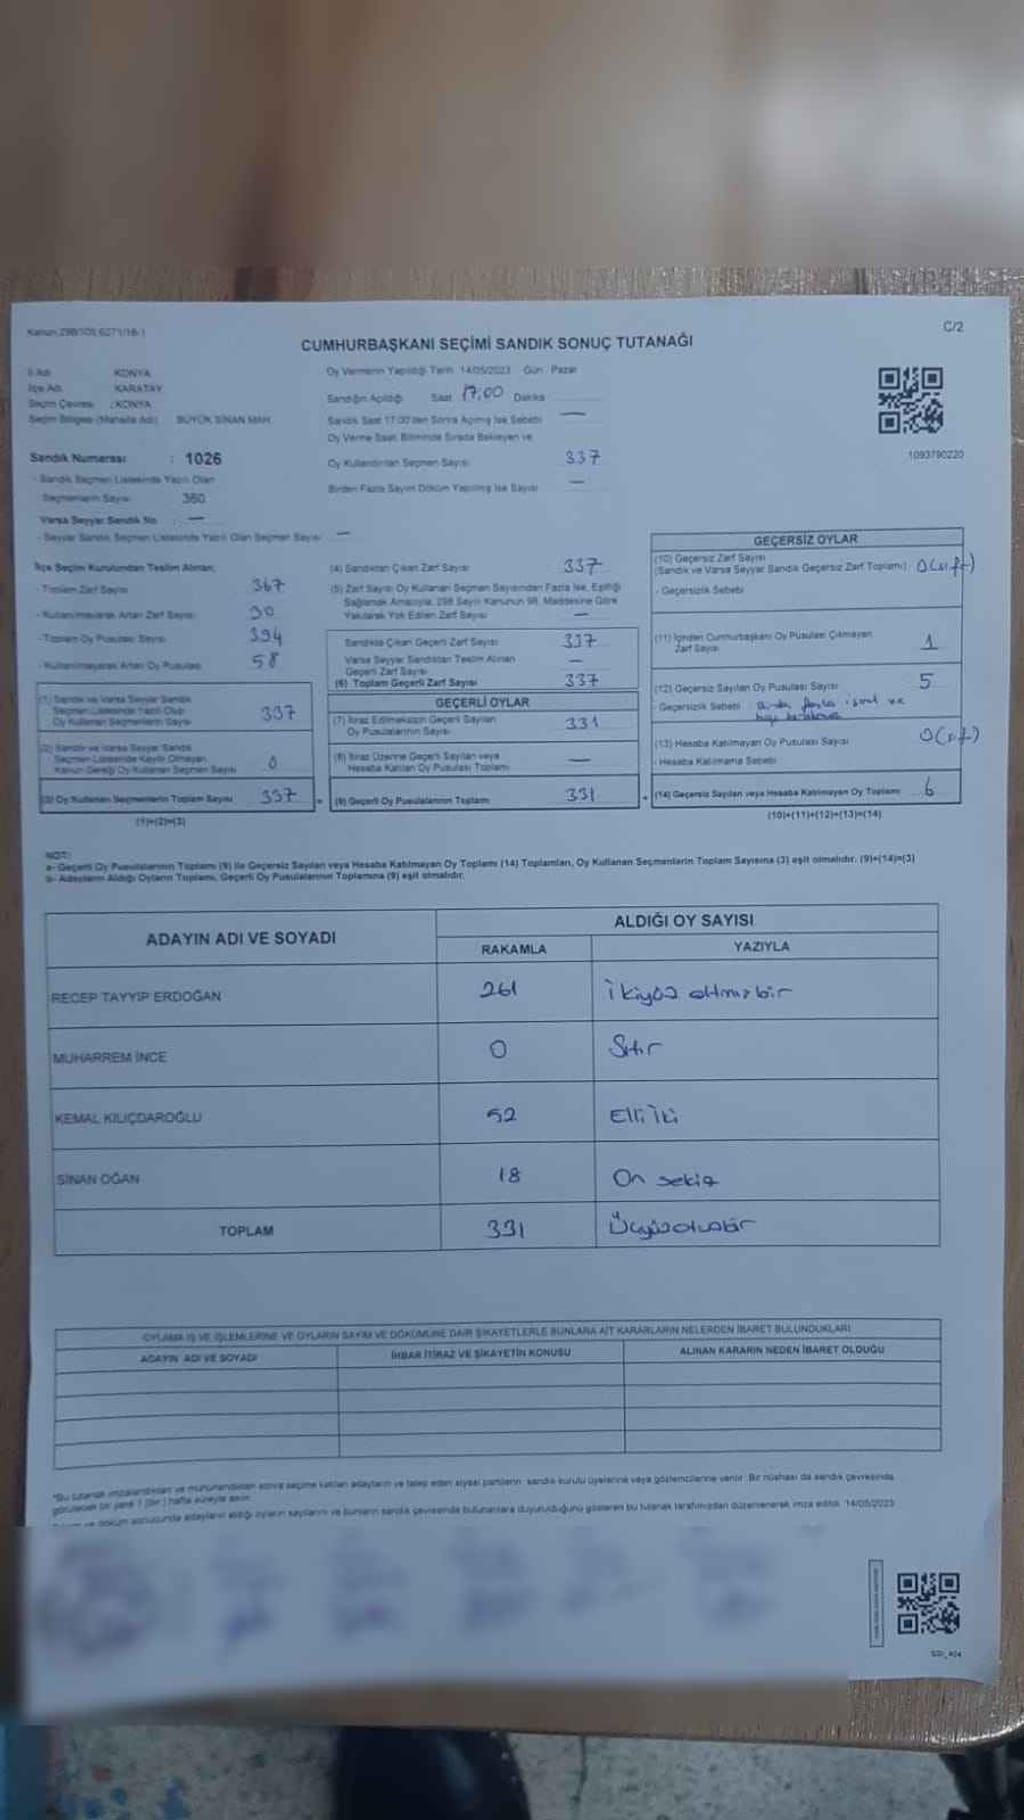 Kanun 298/105 6271/16-1
C/2
CUMHURBAŞKANI SEÇİMİ SANDIK SONUÇ TUTANAĞI
İl Adı KONYA
İlçe Adı KARATAY
Seçim Çevresi : KONYA
Seçim Bölgesi (Mahalle Adı) BÜYÜK SİNAN MAH.
Sandık Numarası : 1026
- Sandık Seçmen Listesinde Yazılı Olan
Seçmenlerin Sayısı 360
Varsa Seyyar Sandık No : —
- Seyyar Sandık Seçmen Listesinde Yazılı Olan Seçmen Sayısı —
Oy Vermenin Yapıldığı Tarih 14/05/2023 Gün : Pazar
Sandığın Açıldığı Saat 17:00 Dakika
Sandık Saat 17:00'den Sonra Açılmış İse Sebebi —
Oy Verme Saati Bitiminde Sırada Bekleyen ve
Oy Kullandırılan Seçmen Sayısı 337
Birden Fazla Sayım Döküm Yapılmış İse Sayısı —
1093790220
İlçe Seçim Kurulundan Teslim Alınan;
- Toplam Zarf Sayısı 367
- Kullanılmayarak Artan Zarf Sayısı 30
- Toplam Oy Pusulası Sayısı 394
- Kullanılmayarak Artan Oy Pusulası 58
(1) Sandık ve Varsa Seyyar Sandık
Seçmen Listesinde Yazılı Olup
Oy Kullanan Seçmenlerin Sayısı 337
(2) Sandık ve Varsa Seyyar Sandık
Seçmen Listesinde Kayıtlı Olmayan
Kanun Gereği Oy Kullanan Seçmen Sayısı 0
(3) Oy Kullanan Seçmenlerin Toplam Sayısı 337
(1)+(2)=(3)
(4) Sandıktan Çıkan Zarf Sayısı 337
(5) Zarf Sayısı Oy Kullanan Seçmen Sayısından Fazla İse, Eşitliği
Sağlamak Amacıyla, 298 Sayılı Kanunun 98. Maddesine Göre
Yakılarak Yok Edilen Zarf Sayısı —
Sandıkta Çıkan Geçerli Zarf Sayısı 337
Varsa Seyyar Sandıktan Teslim Alınan
Geçerli Zarf Sayısı —
(6) Toplam Geçerli Zarf Sayısı 337
GEÇERLİ OYLAR
(7) İtiraz Edilmeksizin Geçerli Sayılan
Oy Pusulalarının Sayısı 331
(8) İtiraz Üzerine Geçerli Sayılan veya
Hesaba Katılan Oy Pusulası Toplamı —
(9) Geçerli Oy Pusulalarının Toplamı 331
GEÇERSİZ OYLAR
(10) Geçersiz Zarf Sayısı
(Sandık ve Varsa Seyyar Sandık Geçersiz Zarf Toplamı) 0(sıfır)
- Geçersizlik Sebebi
(11) İçinden Cumhurbaşkanı Oy Pusulası Çıkmayan
Zarf Sayısı 1
(12) Geçersiz Sayılan Oy Pusulası Sayısı 5
- Geçersizlik Sebebi fazla ve
(13) Hesaba Katılmayan Oy Pusulası Sayısı 0(sıfır)
- Hesaba Katılmama Sebebi
(14) Geçersiz Sayılan veya Hesaba Katılmayan Oy Toplamı 6
(10)+(11)+(12)+(13)=(14)
NOT:
a- Geçerli Oy Pusulalarının Toplamı (9) ile Geçersiz Sayılan veya Hesaba Katılmayan Oy Toplamı (14) Toplamları, Oy Kullanan Seçmenlerin Toplam Sayısına (3) eşit olmalıdır. (9)+(14)=(3)
b- Adayların Aldığı Oyların Toplamı, Geçerli Oy Pusulalarının Toplamına (9) eşit olmalıdır.
ADAYIN ADI VE SOYADI ALDIĞI OY SAYISI
RAKAMLA YAZIYLA
RECEP TAYYİP ERDOĞAN 261 İkiyüz altmış bir
MUHARREM İNCE 0 Sıfır
KEMAL KILIÇDAROĞLU 52 Elli iki
SİNAN OĞAN 18 On sekiz
TOPLAM 331 Üçyüzotuzbir
OYLAMA İŞ VE İŞLEMLERİNE VE OYLARIN SAYIM VE DÖKÜMÜNE DAİR ŞİKAYETLERLE BUNLARA AİT KARARLARIN NELERDEN İBARET BULUNDUKLARI
ADAYIN ADI VE SOYADI İHBAR İTİRAZ VE ŞİKAYETİN KONUSU ALINAN KARARIN NEDEN İBARET OLDUĞU
*Bu tutanak imzalandıktan ve mühürlendikten sonra seçime katılan adayların ve talep eden siyasi partilerin sandık kurulu üyelerine veya gözlemcilerine verilir. Bir nüshası da sandık çevresinde
görülecek bir yere 1 (bir) hafta süreyle asılır.
döküm sonucunda adayların aldığı oyların sayılarını ve bunların sandık çevresinde bulunanlara duyurulduğunu gösteren bu tutanak tarafımızdan düzenlenerek imza edildi. 14/05/2023